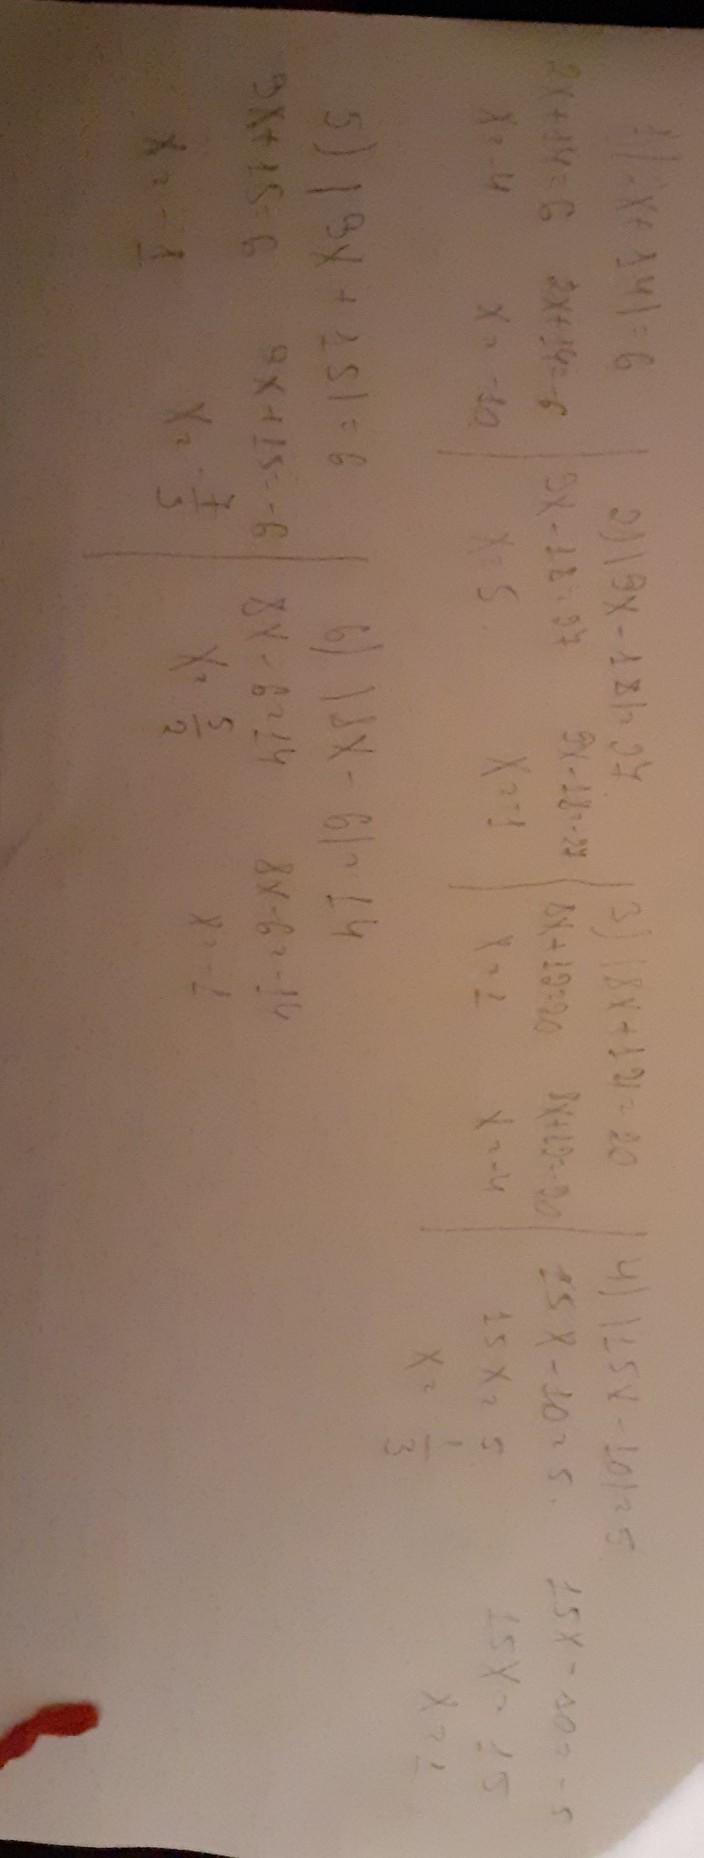 1) |2x + 14| = 6 | 2) |9x - 18| = 27 | 3) |8x + 12| = 20 | 4) |15x - 10| = 5
2x + 14 = 6 2x + 14 = -6 | 9x - 18 = 27 9x - 18 = -27 | 8x + 12 = 20 8x + 12 = -20 | 15x - 10 = 5. 15x - 10 = -5
x = -4 x = -10 | x = 5. x = -1 | x = 1 x = -4 | 15x = 5 15x = 15
x = 1/3 x = 1
5) |9x + 15| = 6 | 6) |8x - 6| = 14
9x + 15 = 6 9x + 15 = -6 | 8x - 6 = 14 8x - 6 = -14
x = -1 x = -7/3 | x = 5/2 x = -1